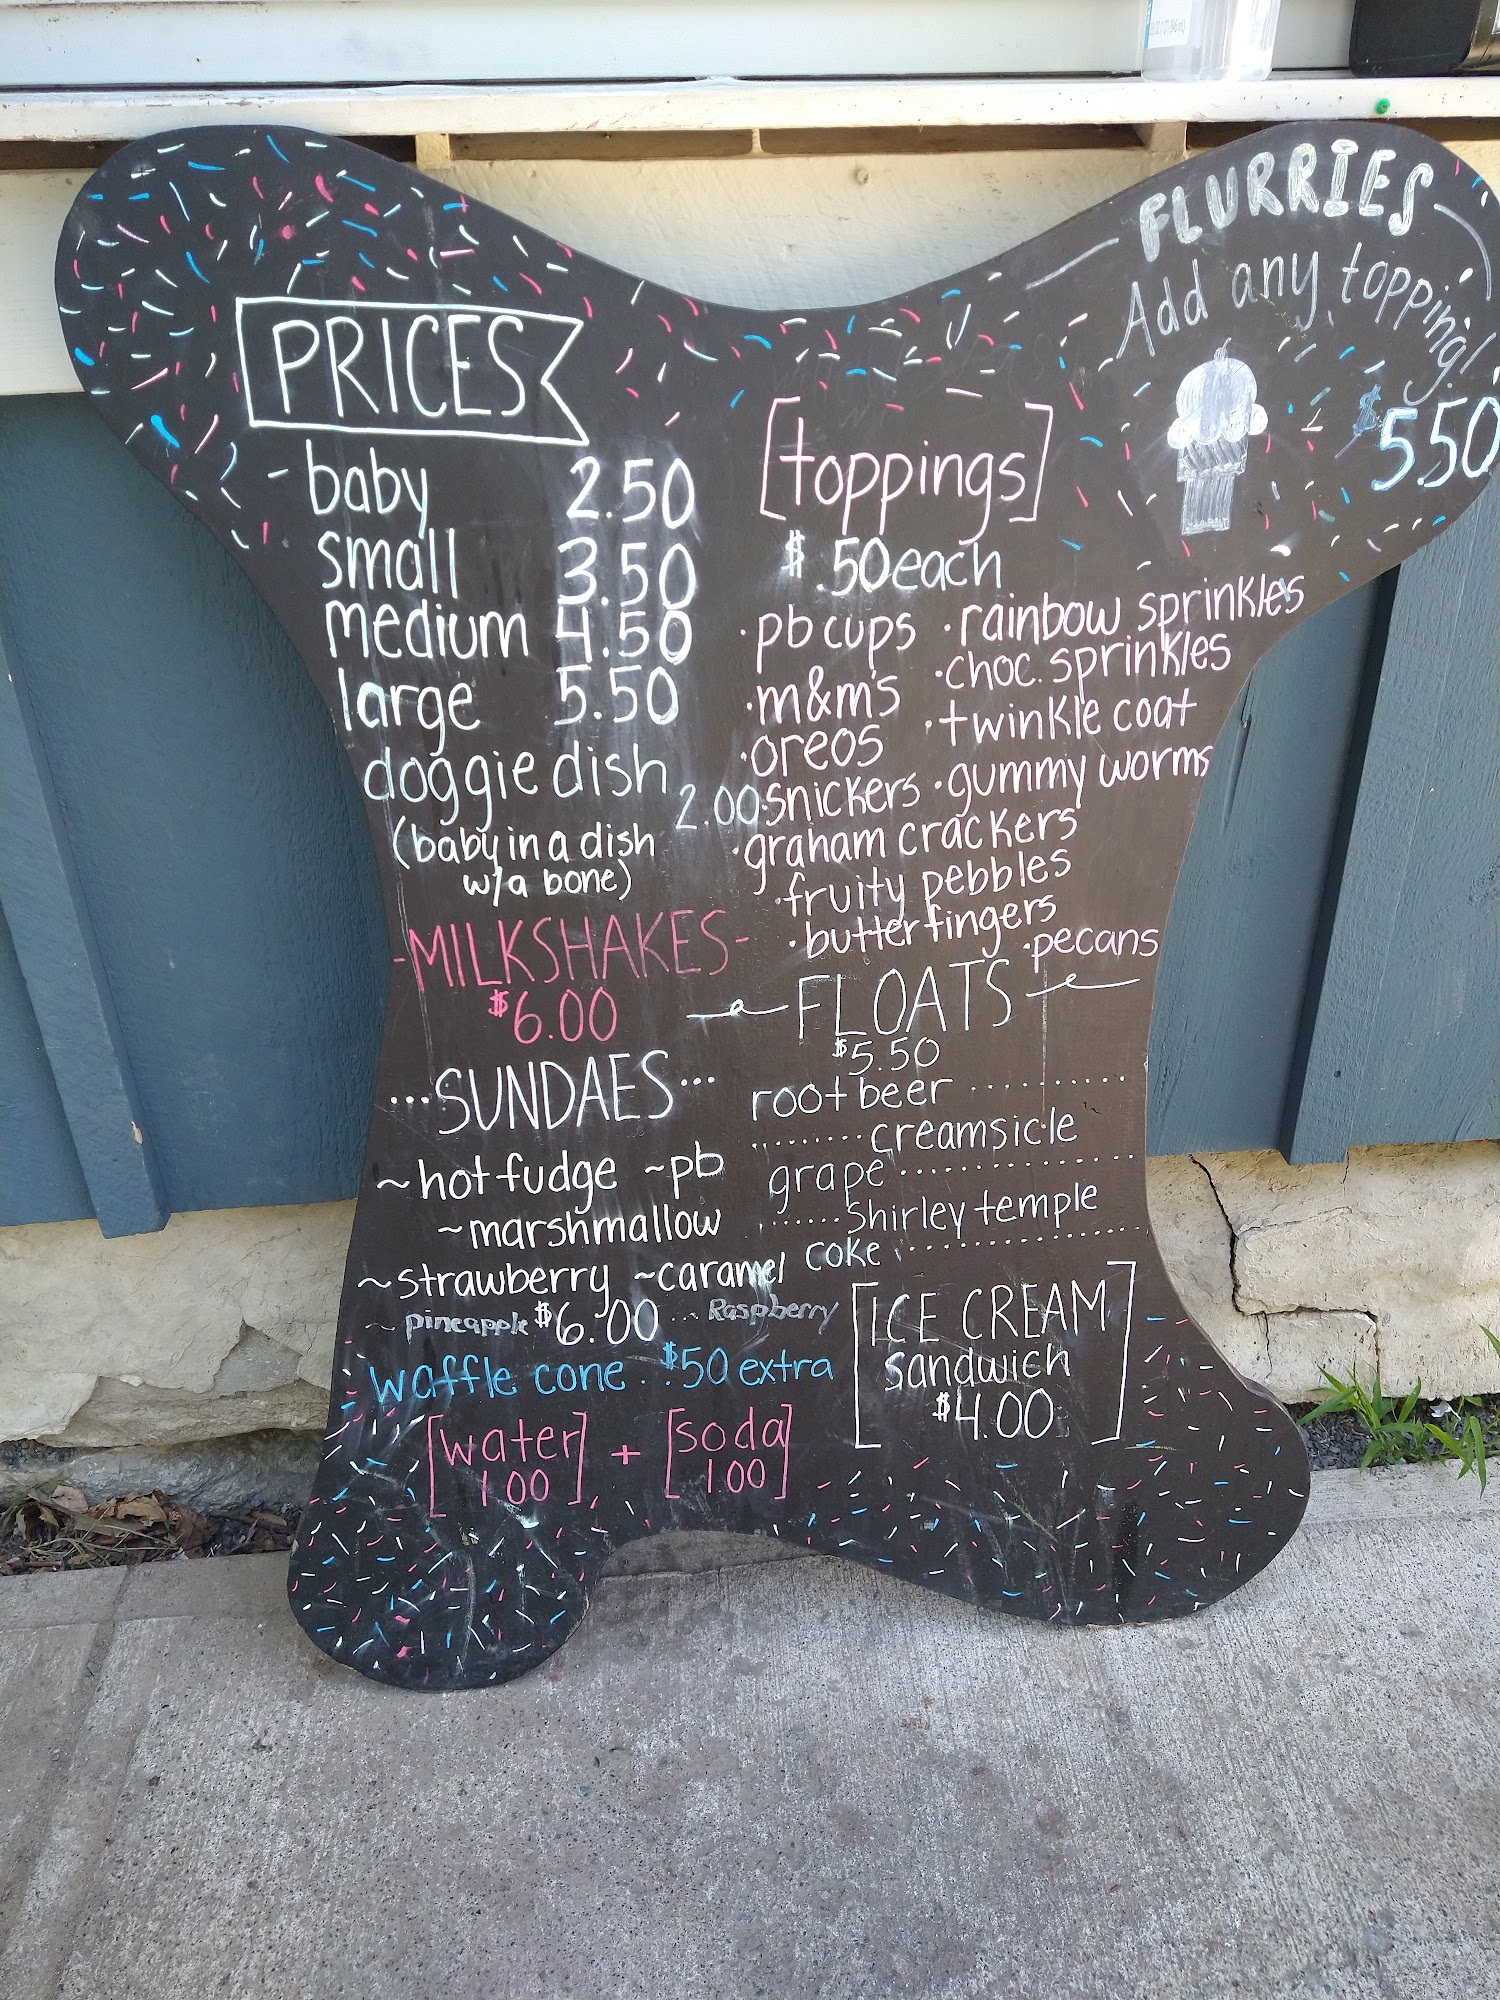 FLURRIES
Add any topping!
$5.50
PRICES
- baby 2.50
small 3.50
medium 4.50
large 5.50
doggie dish 2.00
(baby in a dish
w/a bone)
-MILKSHAKES-
$6.00
...SUNDAES...
~hot fudge ~pb
~marshmallow
~strawberry ~caramel
~ pineapple $6.00 ... Raspberry
waffle cone . . $.50 extra
[water] + [soda]
1.00 1.00
[toppings]
$.50 each
·pb cups ·rainbow sprinkles
·m&m's ·choc. sprinkles
·oreos ·twinkle coat
·snickers ·gummy worms
·graham crackers
·fruity pebbles
·butterfingers
·pecans
FLOATS
$5.50
root beer ..........
........ creamsicle
grape ..............
....... Shirley temple
coke ...............
[ICE CREAM
sandwich
$4.00]